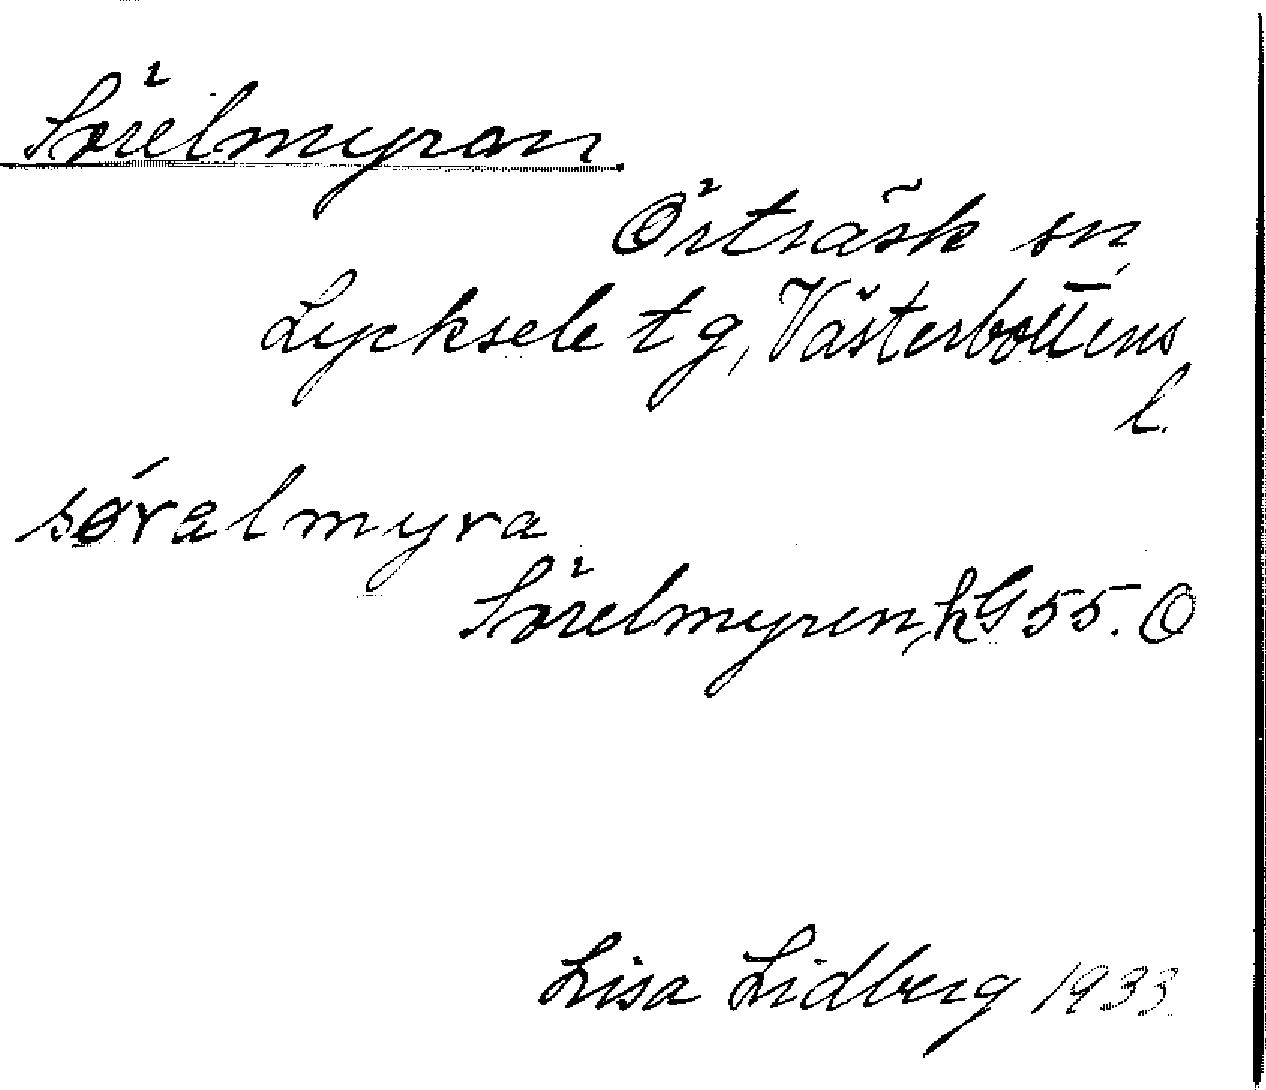 Sörelmyran
Örträsk sn,
Lycksele tg, Västerbottens
l.
søralmyra
Sörelmyren, hG 55. O
Lisa Lidberg 1933